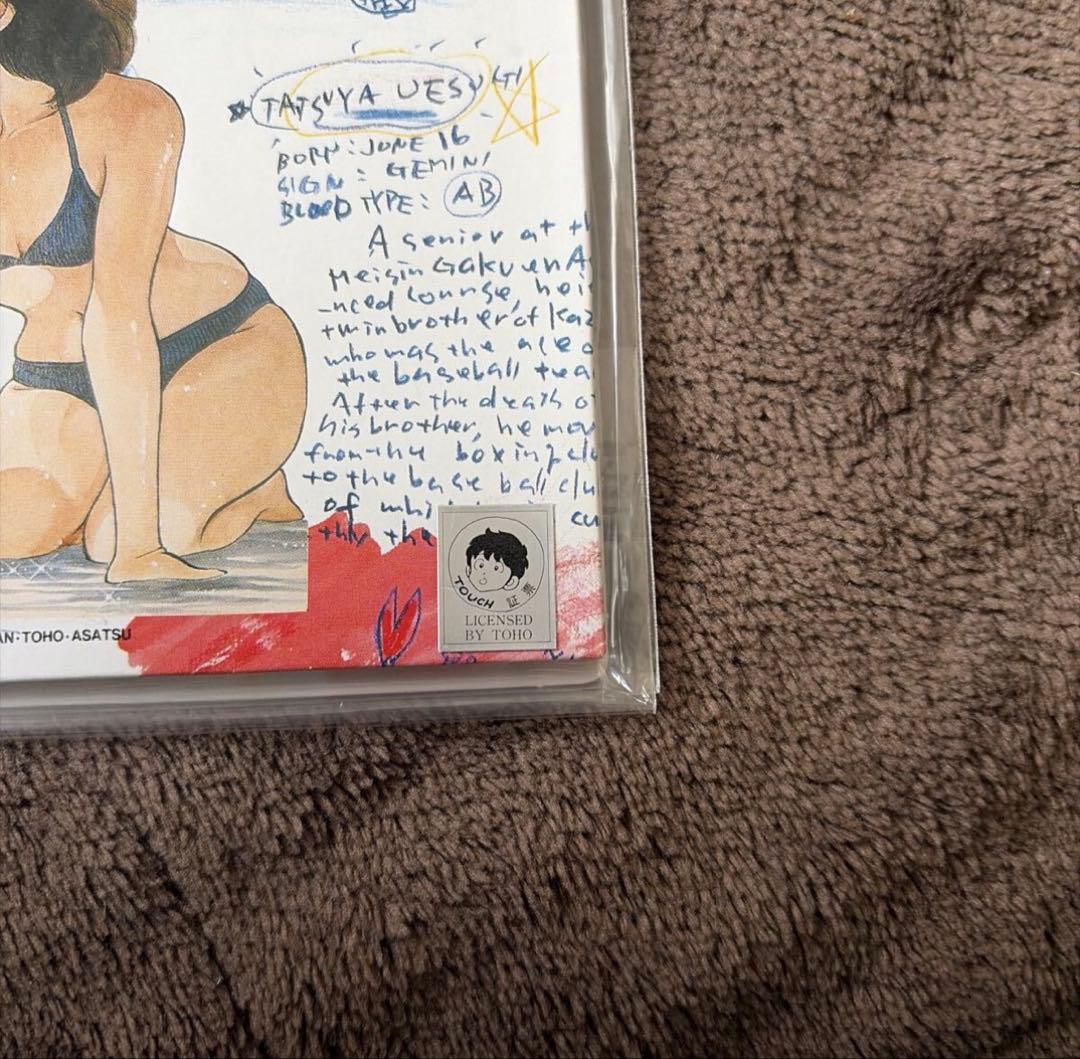 TATSUYA UESUKTI
BORN: JUNE 16
SIGN: GEMINI
BLOOD TYPE: AB
A senior at th
Meisin Gakuen A
-nced Course, hei
twin brother of Kaz
who was the ace o
the baseball tea
After the death o
his brother, he mov
from the boxing clu
to the base ball clu
of whi cu
the
TOUCH 証票
LICENSED
BY TOHO
AN:TOHO·ASATSU